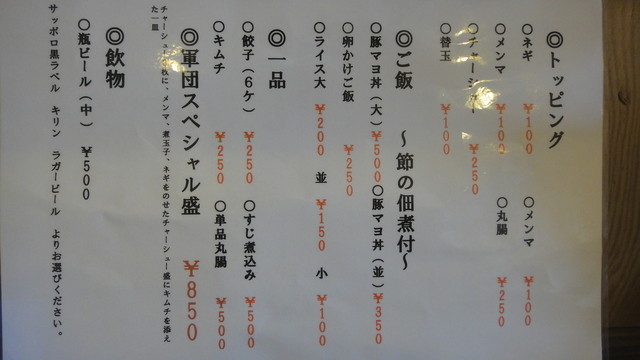 ◎トッピング
○ネギ ¥100 ○メンマ ¥100
○メンマ ¥100 ○丸腸 ¥250
○チャーシュー ¥250
○替玉 ¥100
◎ご飯 ～節の佃煮付～
○豚マヨ丼(大) ¥500 ○豚マヨ丼(並) ¥350
○卵かけご飯 ¥250
○ライス大 ¥200 並 ¥150 小 ¥100
◎一品
○餃子(6ケ) ¥250 ○すじ煮込み ¥500
○キムチ ¥250 ○単品丸腸 ¥500
◎軍団スペシャル盛 ¥850
チャーシュー 枚に、メンマ、煮玉子、ネギをのせたチャーシュー盛にキムチを添え
た一皿
◎飲物
○瓶ビール(中) ¥500
サッポロ黒ラベル キリン ラガービール よりお選びください。